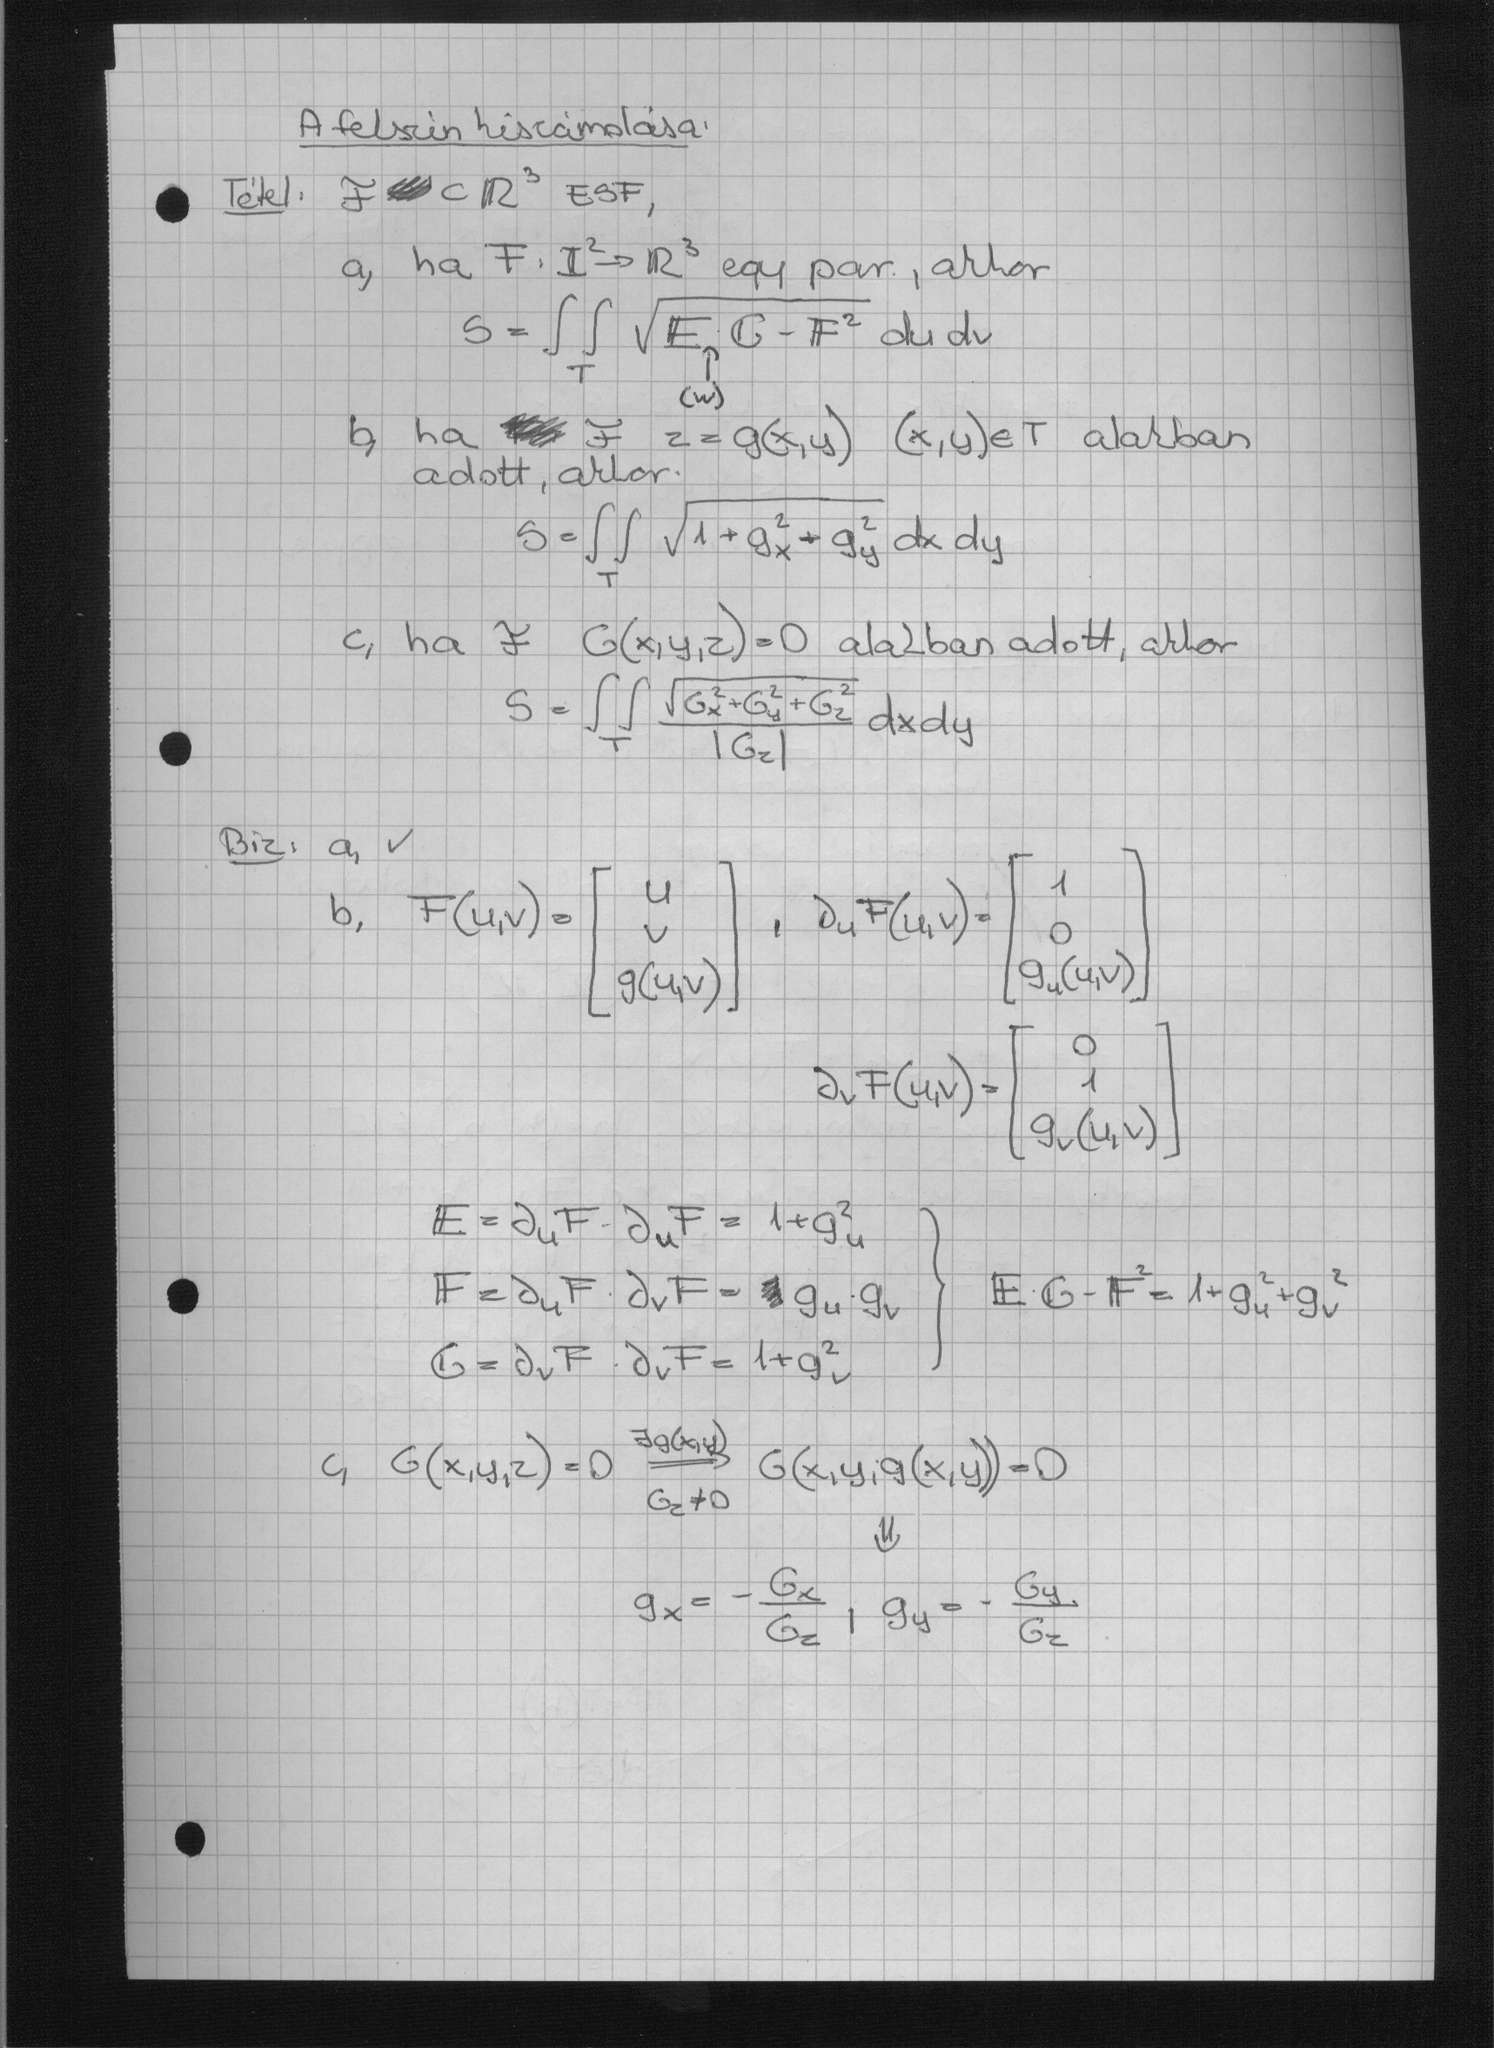 A felszín kiszámolása:
Tétel: ℱ ⊂ ℝ³ ESF,
a, ha F: I² → ℝ³ egy par., akkor
S = ∬_T √(𝔼·𝔾 - 𝔽²) du dv
↑
(w)
b, ha ℱ z = g(x,y) (x,y)∈T alakban
adott, akkor:
S = ∬_T √(1 + g_x² + g_y²) dx dy
c, ha ℱ G(x,y,z) = 0 alakban adott, akkor
S = ∬_T √(G_x² + G_y² + G_z²) / |G_z| dx dy
Biz: a, ✓
b, F(u,v) = [u v g(u,v)], ∂_u F(u,v) = [1 0 g_u(u,v)]
∂_v F(u,v) = [0 1 g_v(u,v)]
𝔼 = ∂_u F · ∂_u F = 1 + g_u²
𝔽 = ∂_u F · ∂_v F = g_u · g_v } 𝔼·𝔾 - 𝔽² = 1 + g_u² + g_v²
𝔾 = ∂_v F · ∂_v F = 1 + g_v²
c, G(x,y,z) = 0 ⟹ (∃g(x,y), G_z ≠ 0) G(x,y,g(x,y)) = 0
⇓
g_x = - G_x / G_z, g_y = - G_y / G_z